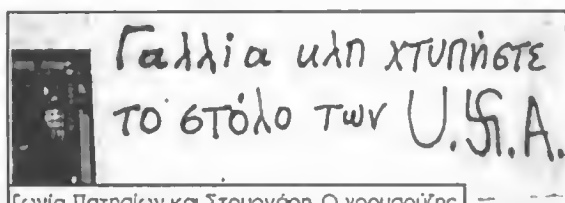 Γαλλία κλπ χτυπήστε
το στόλο των U.卐.A.
Γωνία Πατησίων και Στουρνάρη. Ο χρωμαρύζης